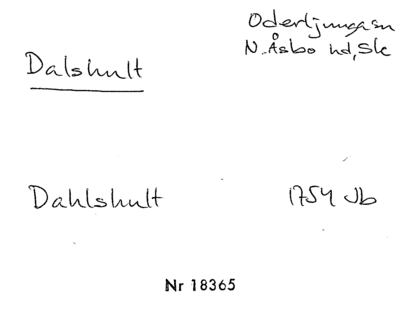 Dalshult
Oderljunga sn
N. Åsbo hd, Sk
Dahlshult 1754 Jb
Nr 18365